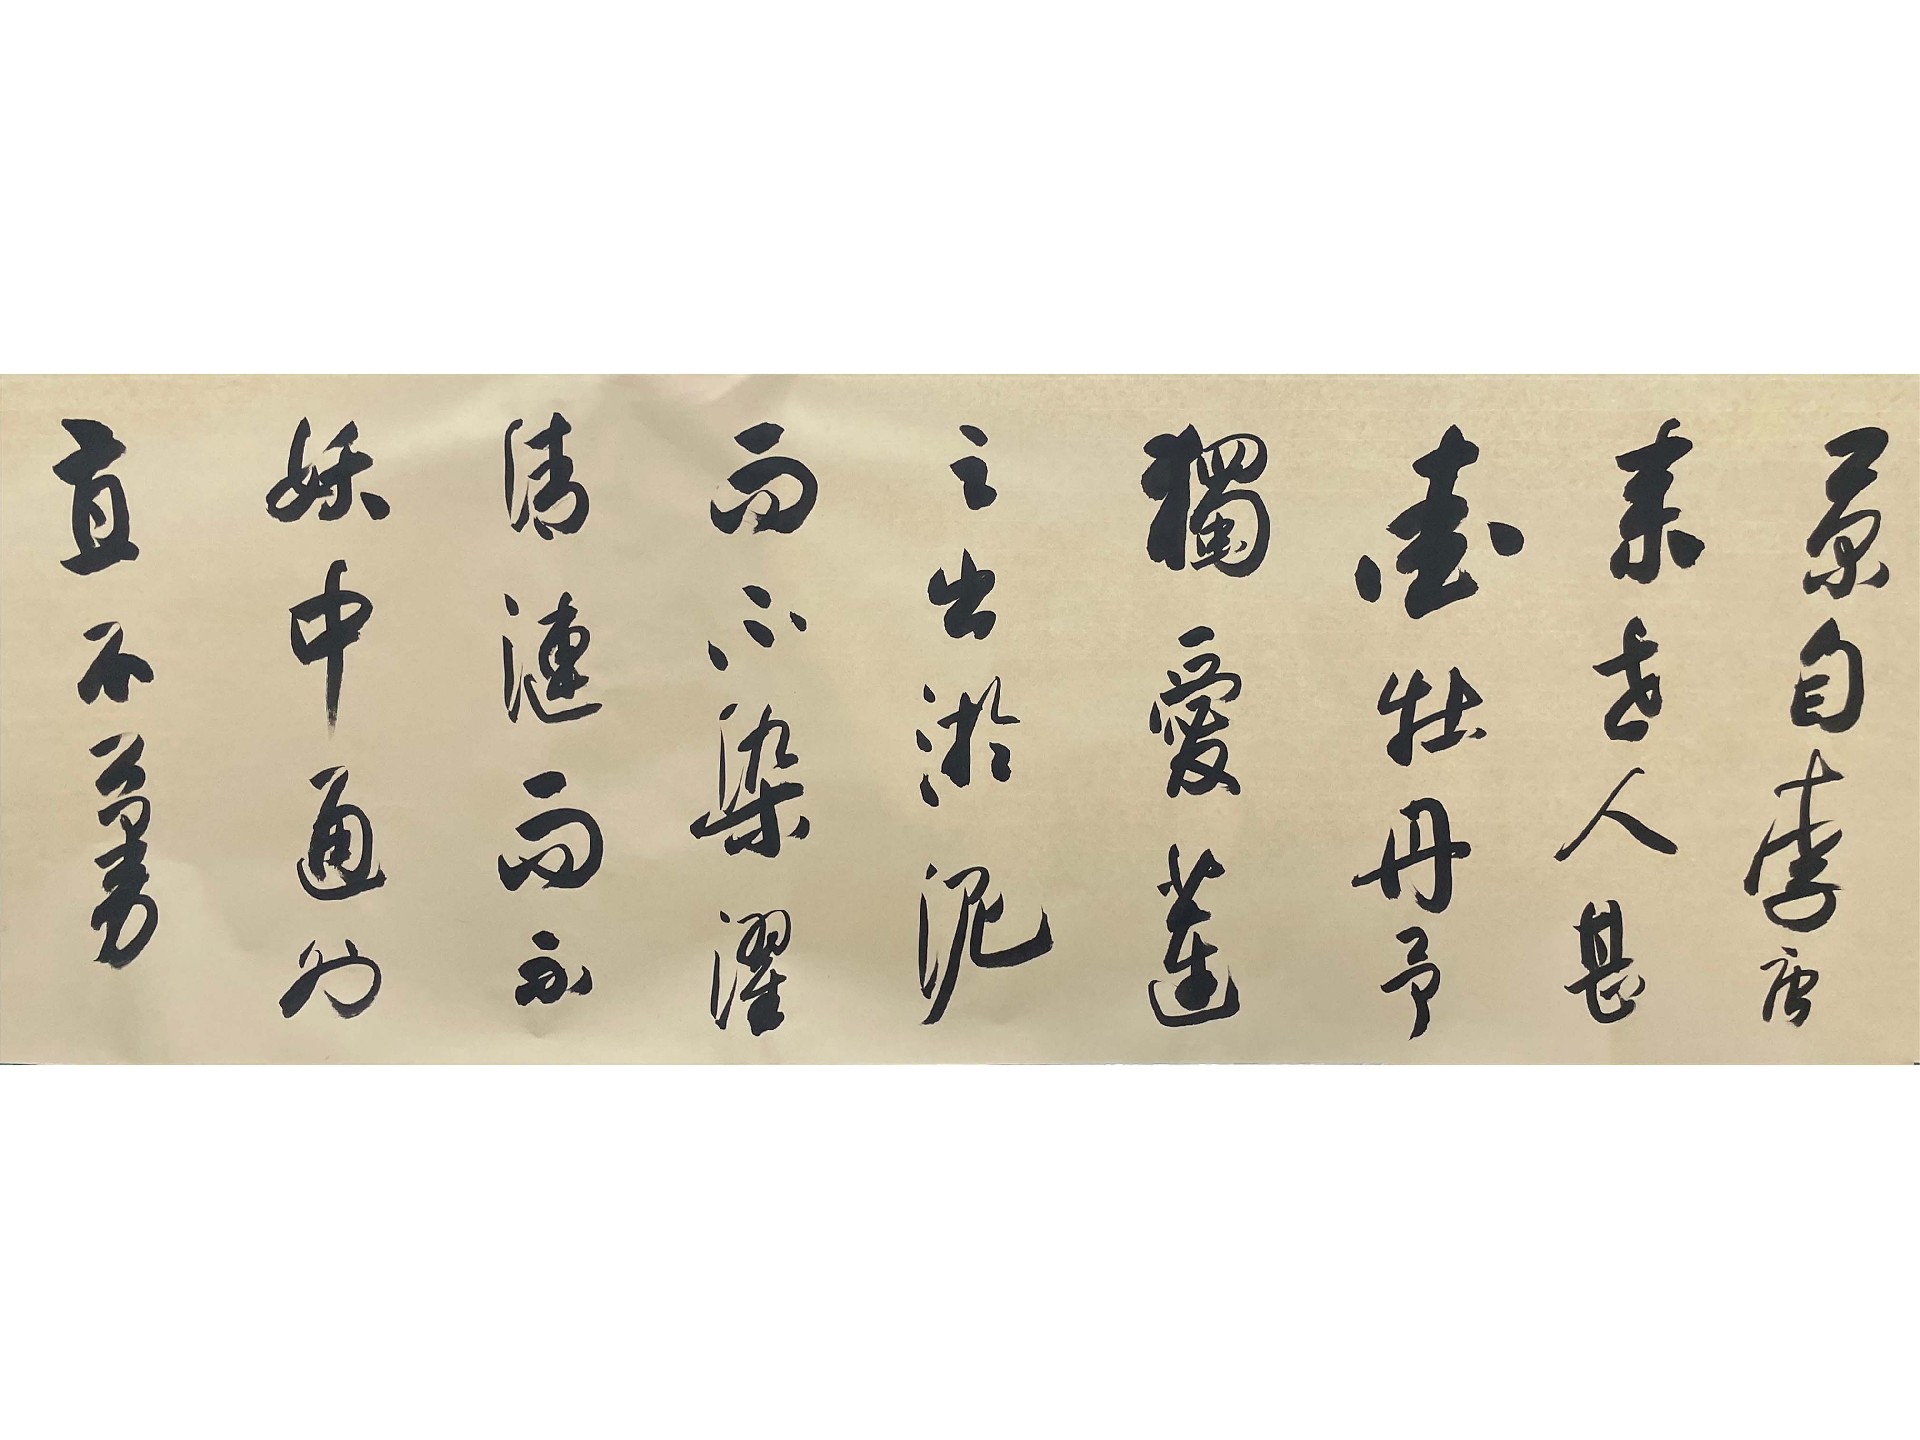 菊自李唐
来世人甚
愛牡丹予
獨愛蓮
之出淤泥
而不染濯
清漣而不
妖中通外
直不蔓